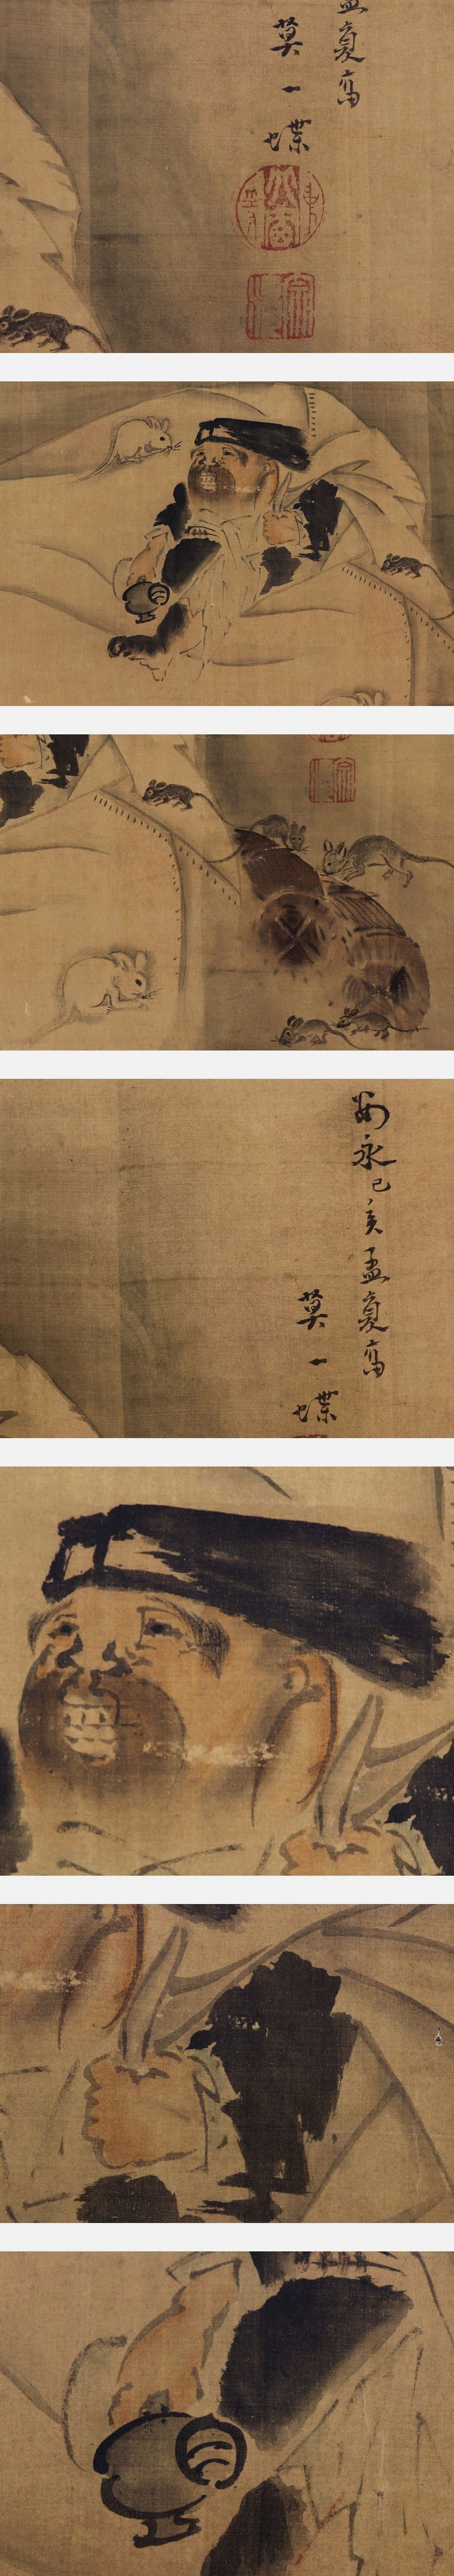 孟夏寫
英一蝶
安永己亥孟夏寫
英一蝶